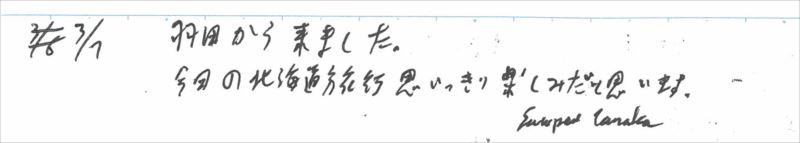 3/7 羽田から来ました。
今回の北海道旅行思いっきり楽しみだと思います。
Tanaka